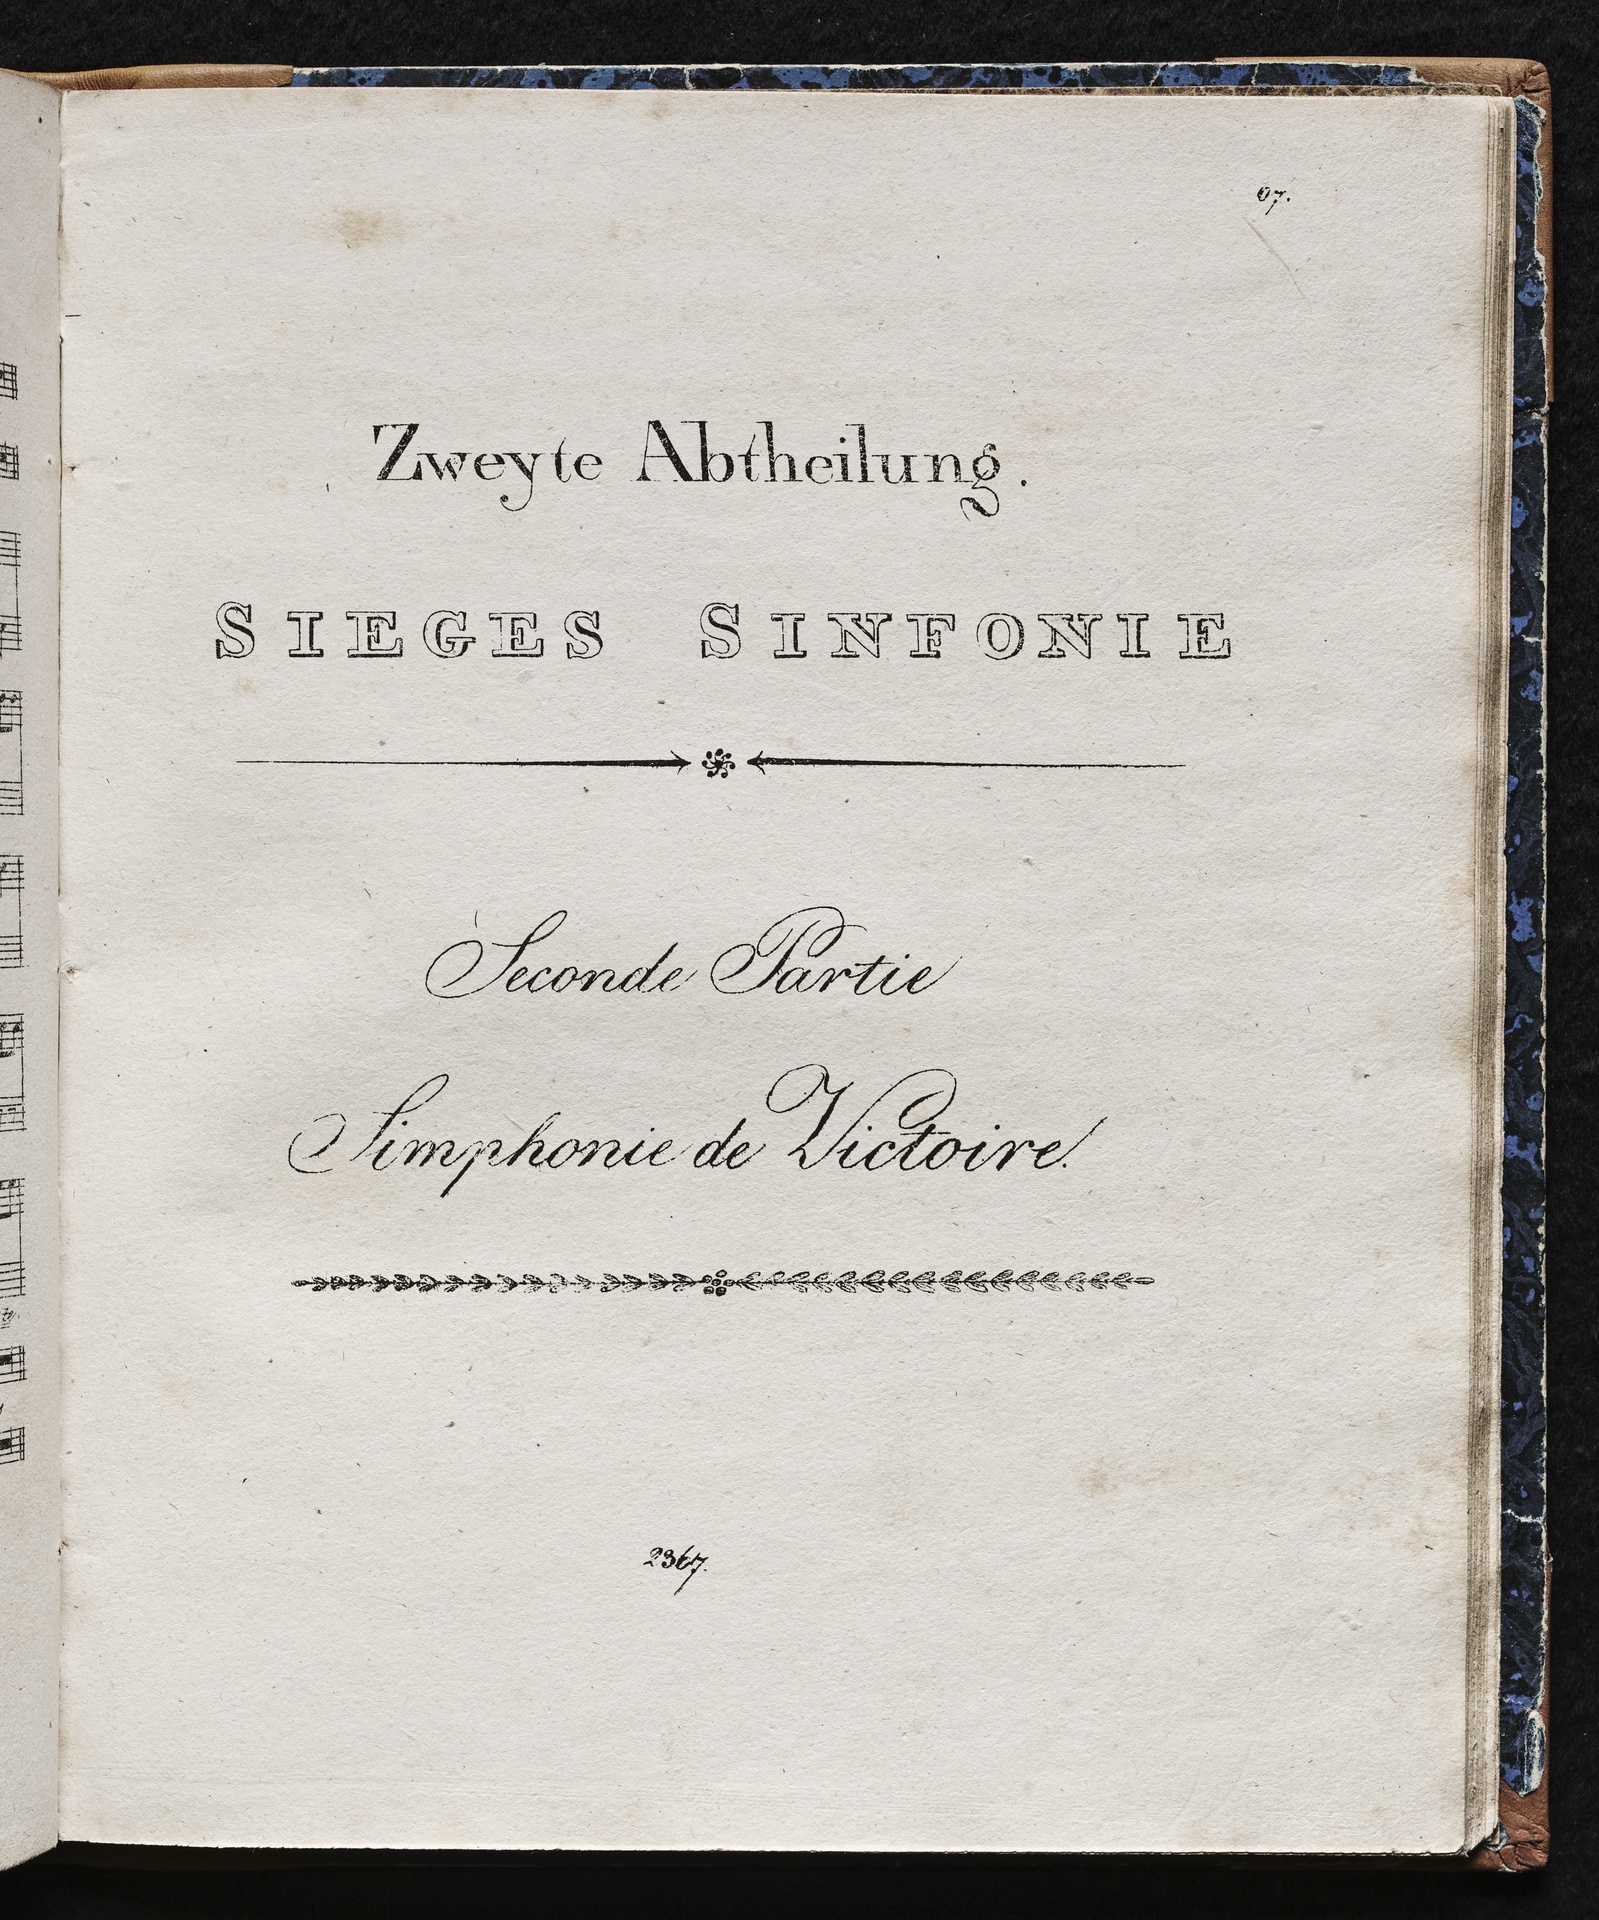 67.
Zweyte Abtheilung.
SIEGES SINFONIE
Seconde Partie
Simphonie de Victoire.
2367.